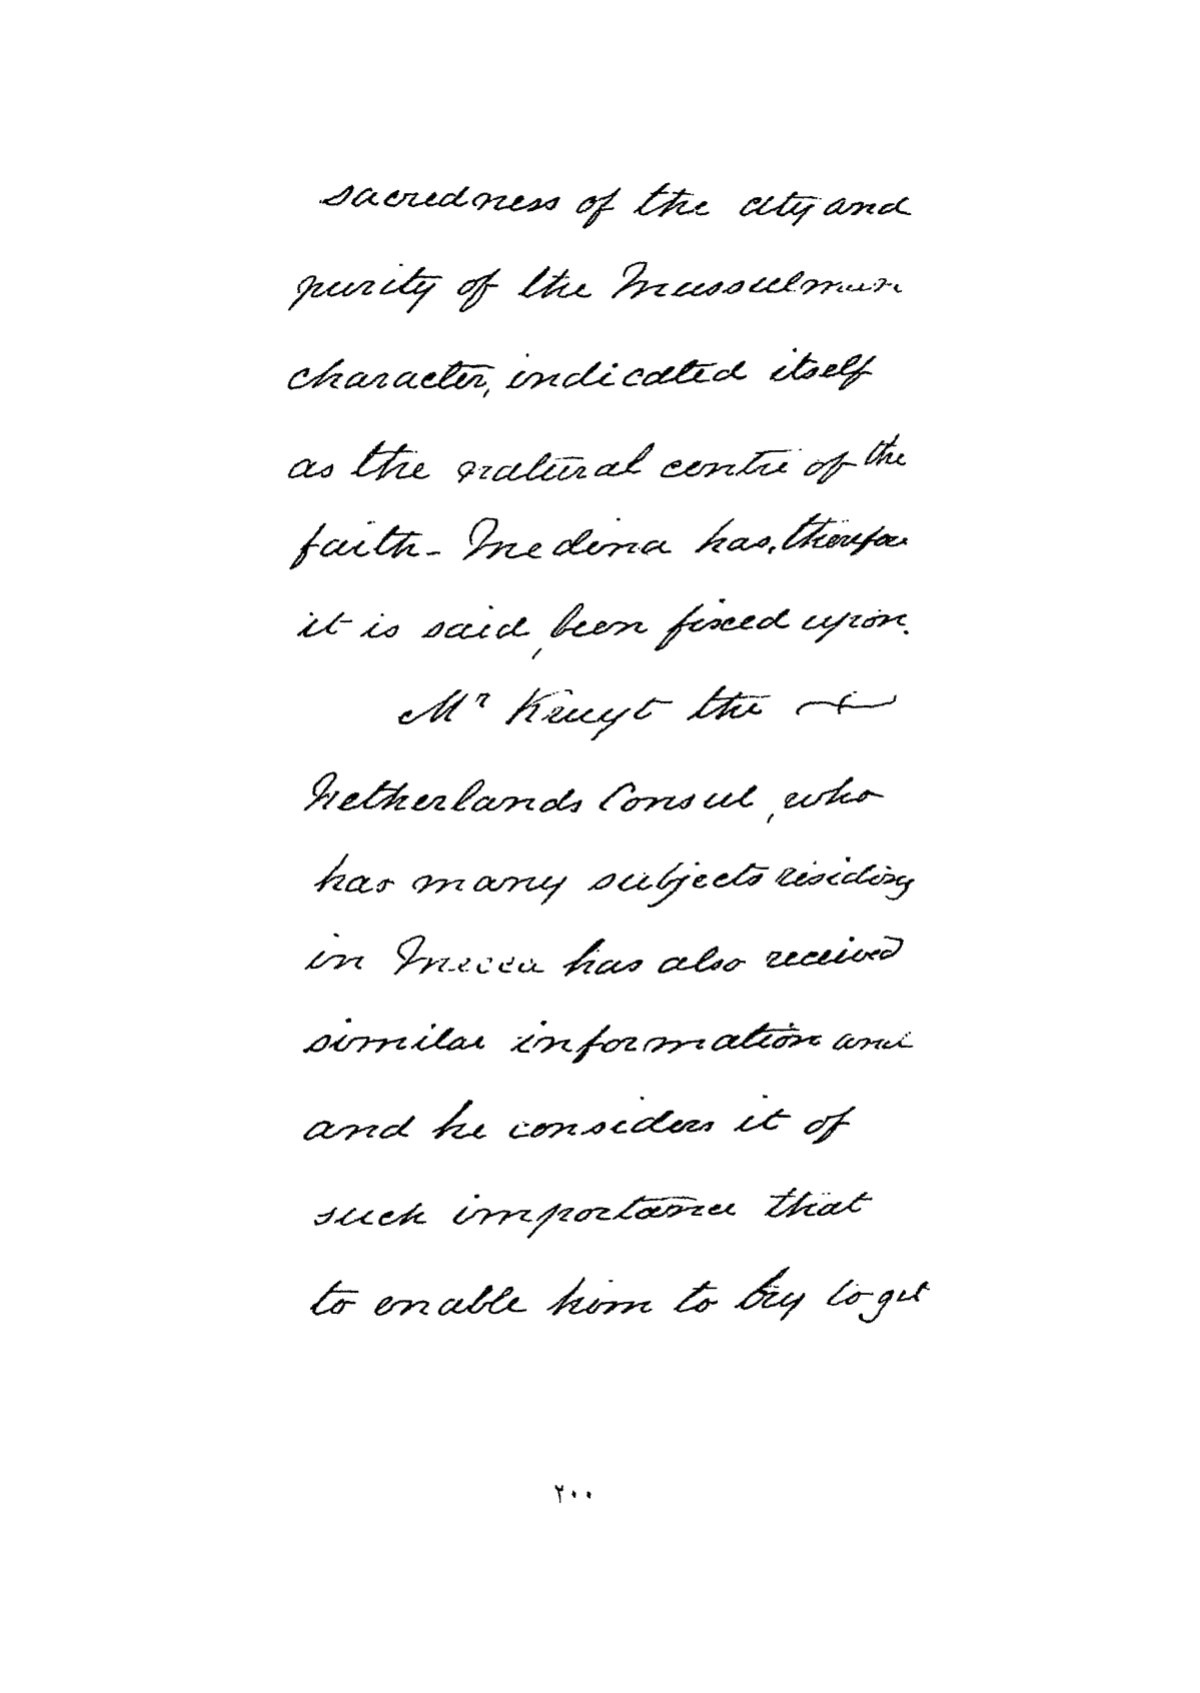 sacredness of the city and
purity of the Mussulman
character, indicated itself
as the natural centre of the
faith - Medina has, therefore
it is said, been fixed upon.
Mr Kruyt the
Netherlands Consul, who
has many subjects residing
in Mecca has also received
similar information and
and he considers it of
such importance that
to enable him to try to get
٢٠٠